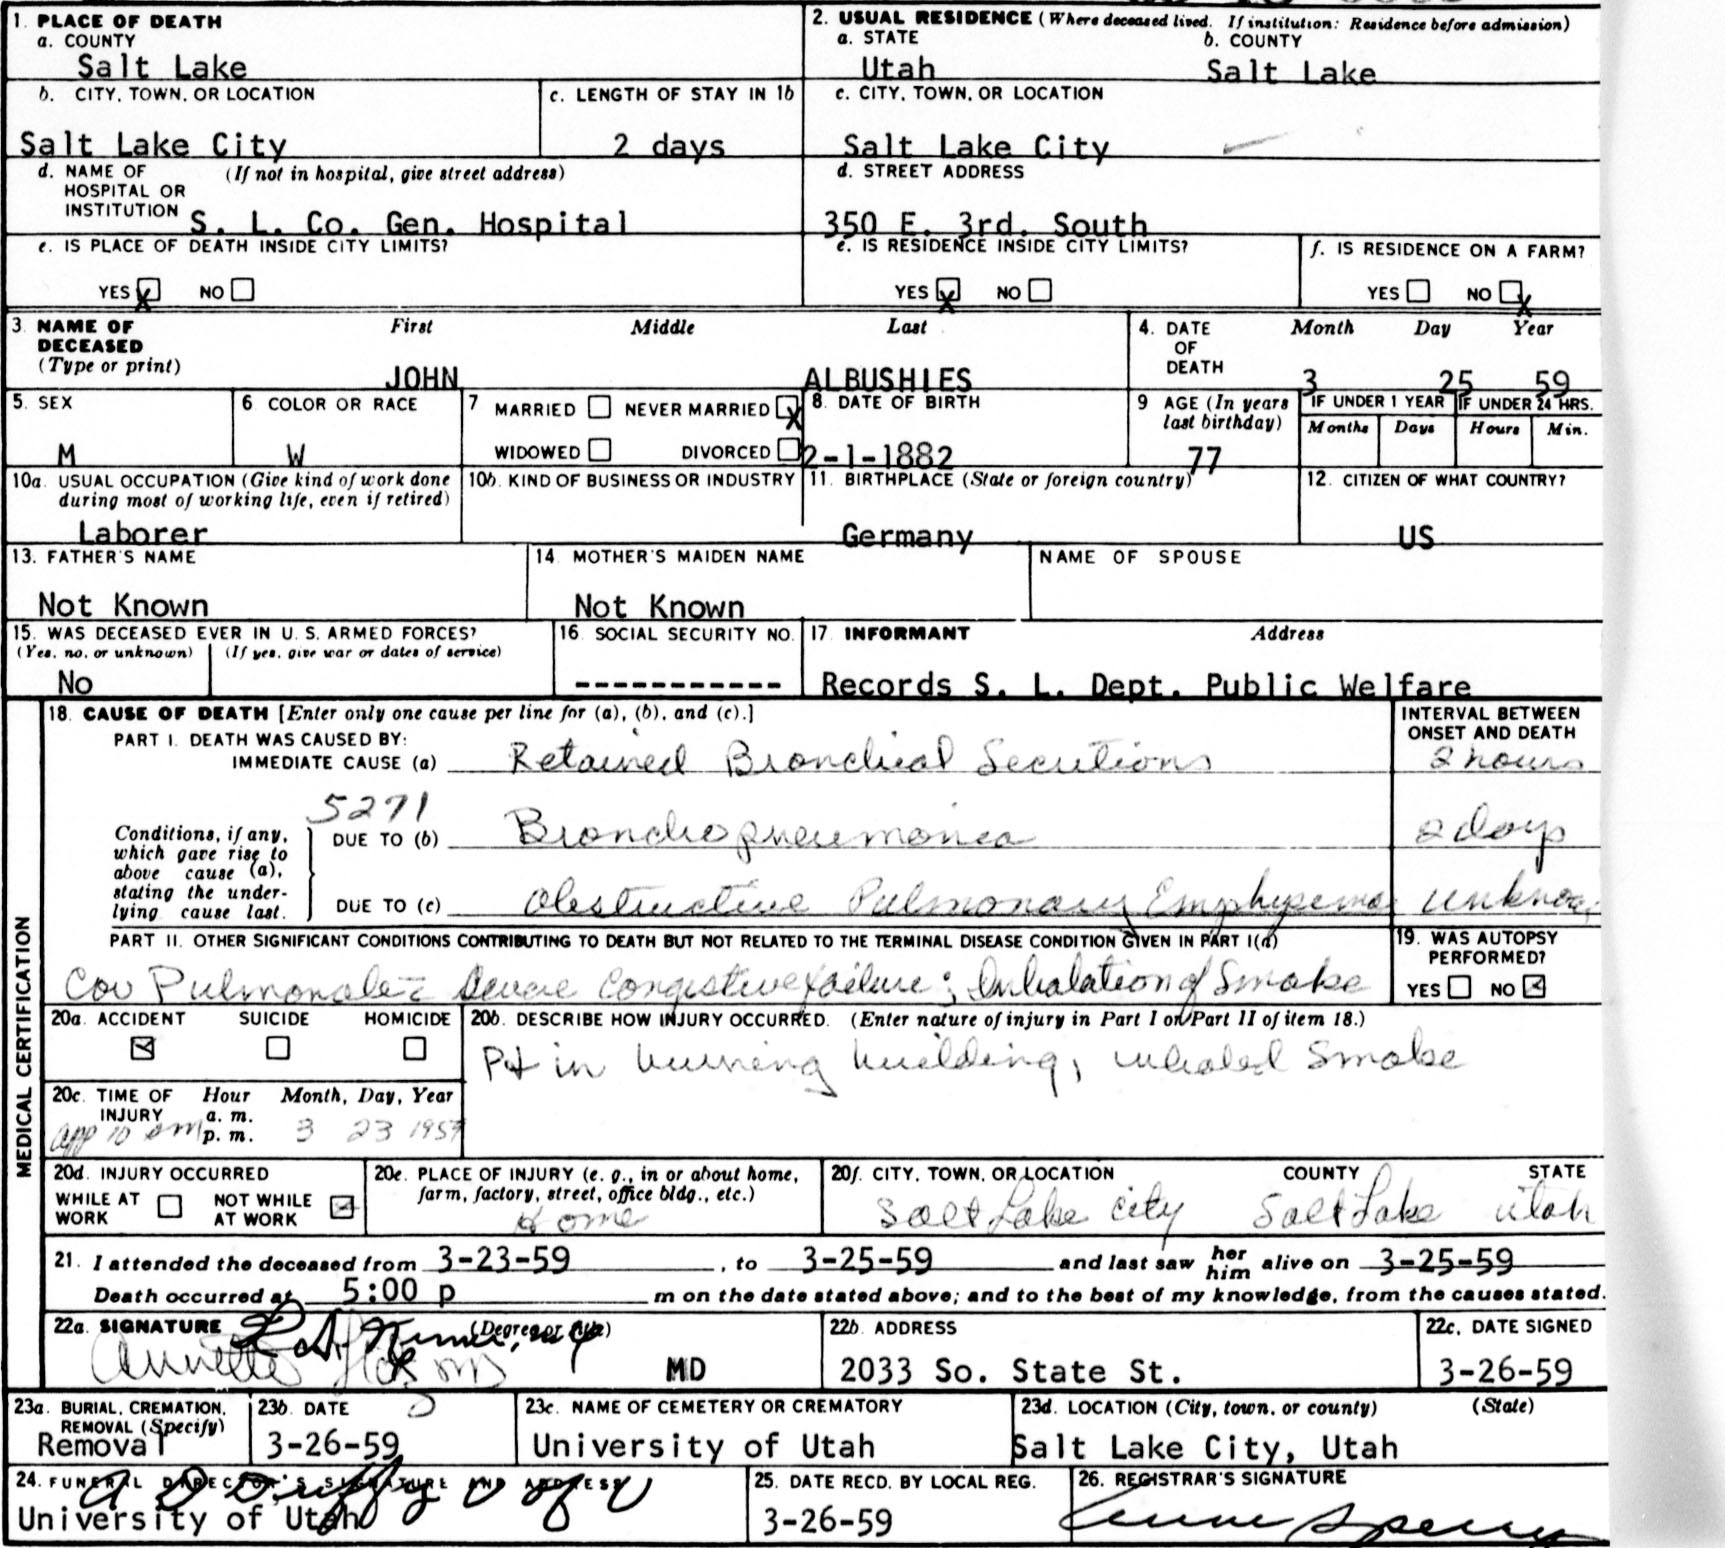 1. PLACE OF DEATH
a. COUNTY
Salt Lake
2. USUAL RESIDENCE (Where deceased lived. If institution: Residence before admission)
a. STATE b. COUNTY
Utah Salt Lake
b. CITY, TOWN, OR LOCATION
Salt Lake City
c. LENGTH OF STAY IN 1b
2 days
c. CITY, TOWN, OR LOCATION
Salt Lake City
d. NAME OF (If not in hospital, give street address)
HOSPITAL OR
INSTITUTION S. L. Co. Gen. Hospital
d. STREET ADDRESS
350 E. 3rd. South
e. IS PLACE OF DEATH INSIDE CITY LIMITS?
YES X NO
e. IS RESIDENCE INSIDE CITY LIMITS?
YES X NO
f. IS RESIDENCE ON A FARM?
YES NO X
3. NAME OF DECEASED (Type or print)
First Middle Last
JOHN ALBUSHIES
4. DATE OF DEATH
Month Day Year
3 25 59
5. SEX
M
6 COLOR OR RACE
W
7 MARRIED NEVER MARRIED X
WIDOWED DIVORCED
8. DATE OF BIRTH
2-1-1882
9 AGE (In years last birthday)
77
IF UNDER 1 YEAR IF UNDER 24 HRS.
Months Days Hours Min.
10a. USUAL OCCUPATION (Give kind of work done
during most of working life, even if retired)
Laborer
10b. KIND OF BUSINESS OR INDUSTRY
11. BIRTHPLACE (State or foreign country)
Germany
12. CITIZEN OF WHAT COUNTRY?
US
13. FATHER'S NAME
Not Known
14. MOTHER'S MAIDEN NAME
Not Known
NAME OF SPOUSE
15. WAS DECEASED EVER IN U. S. ARMED FORCES?
(Yes, no, or unknown) (If yes, give war or dates of service)
No
16. SOCIAL SECURITY NO.
-----------
17. INFORMANT Address
Records S. L. Dept. Public Welfare
MEDICAL CERTIFICATION
18. CAUSE OF DEATH [Enter only one cause per line for (a), (b), and (c).]
INTERVAL BETWEEN
ONSET AND DEATH
PART I. DEATH WAS CAUSED BY:
IMMEDIATE CAUSE (a) Retained Bronchial Secretions 2 hours
5271
Conditions, if any,
which gave rise to
above cause (a),
stating the under-
lying cause last.
DUE TO (b) Bronchopneumonia 2 days
DUE TO (c) Obstructive Pulmonary Emphysema unknown
PART II. OTHER SIGNIFICANT CONDITIONS CONTRIBUTING TO DEATH BUT NOT RELATED TO THE TERMINAL DISEASE CONDITION GIVEN IN PART I(a)
Cor Pulmonale c̄ Severe Congestive failure; Inhalation of Smoke
19. WAS AUTOPSY
PERFORMED?
YES NO
20a. ACCIDENT SUICIDE HOMICIDE
20b. DESCRIBE HOW INJURY OCCURRED. (Enter nature of injury in Part I or Part II of item 18.)
Pt in burning building, inhaled Smoke
20c. TIME OF INJURY
Hour Month, Day, Year
a. m.
p. m.
app 10 3 23 1959
20d. INJURY OCCURRED
WHILE AT WORK NOT WHILE AT WORK
20e. PLACE OF INJURY (e. g., in or about home,
farm, factory, street, office bldg., etc.)
Home
20f. CITY, TOWN, OR LOCATION COUNTY STATE
Salt Lake City Salt Lake Utah
21. I attended the deceased from 3-23-59, to 3-25-59 and last saw her him alive on 3-25-59
Death occurred at 5:00 p m on the date stated above; and to the best of my knowledge, from the causes stated.
22a. SIGNATURE (Degree or title)
Annette MD
MD
22b. ADDRESS
2033 So. State St.
22c. DATE SIGNED
3-26-59
23a. BURIAL, CREMATION,
REMOVAL (Specify)
Removal
23b. DATE
3-26-59
23c. NAME OF CEMETERY OR CREMATORY
University of Utah
23d. LOCATION (City, town, or county) (State)
Salt Lake City, Utah
24. FUNERAL DIRECTOR'S SIGNATURE AND ADDRESS
A D Duffy U of U
University of Utah
25. DATE RECD. BY LOCAL REG.
3-26-59
26. REGISTRAR'S SIGNATURE